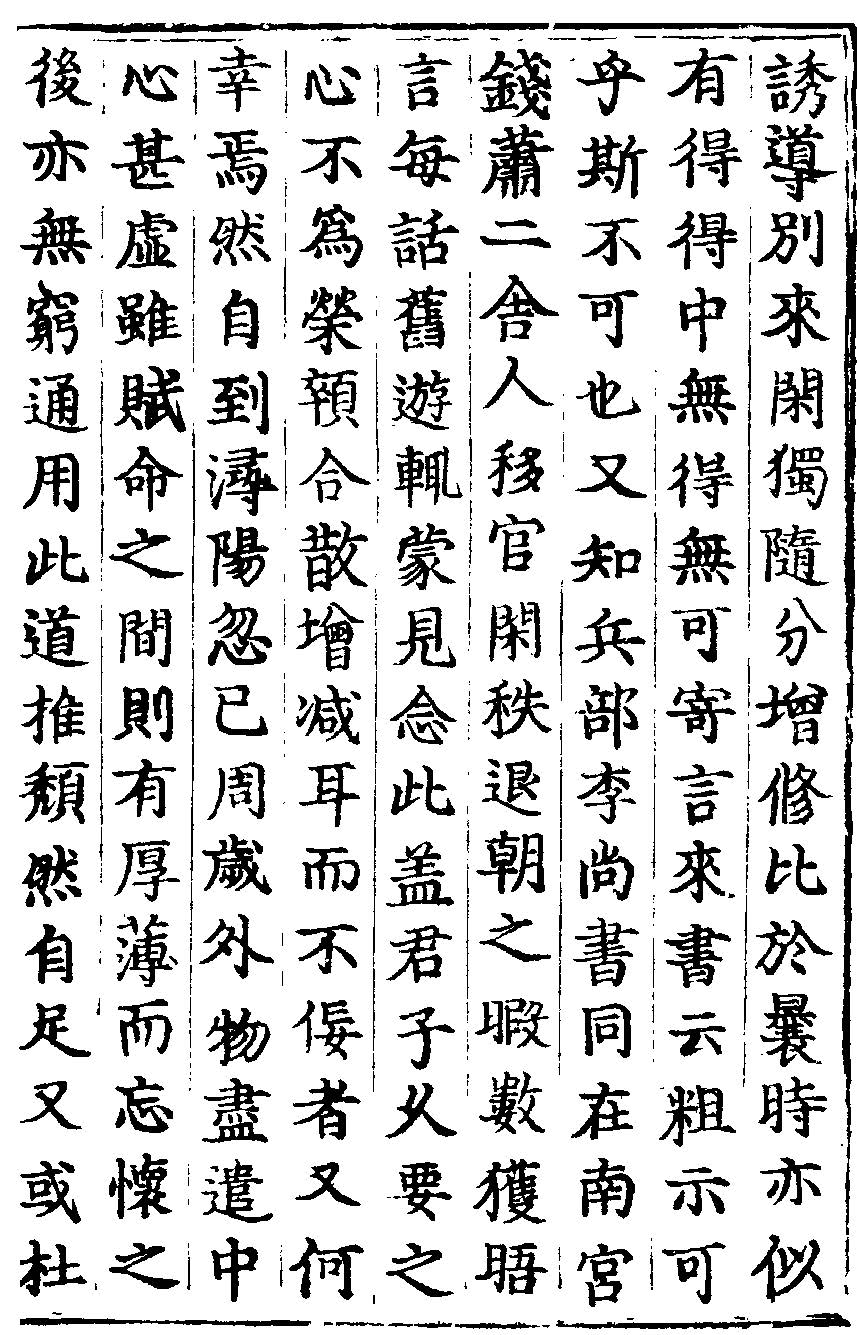 誘導別來閑獨隨分增修比於曩時亦似
有得得中無得無可寄言來書云粗示可
乎斯不可也又知兵部李尚書同在南宮
錢蕭二舍人移官閑秩退朝之暇數獲晤
言每話舊遊輒蒙見念此盖君子久要之
心不爲榮顇合散增減耳而不佞者又何
幸焉然自到潯陽忽已周歲外物盡遣中
心甚虛雖賦命之間則有厚薄而忘懷之
後亦無窮通用此道推頹然自足又或杜